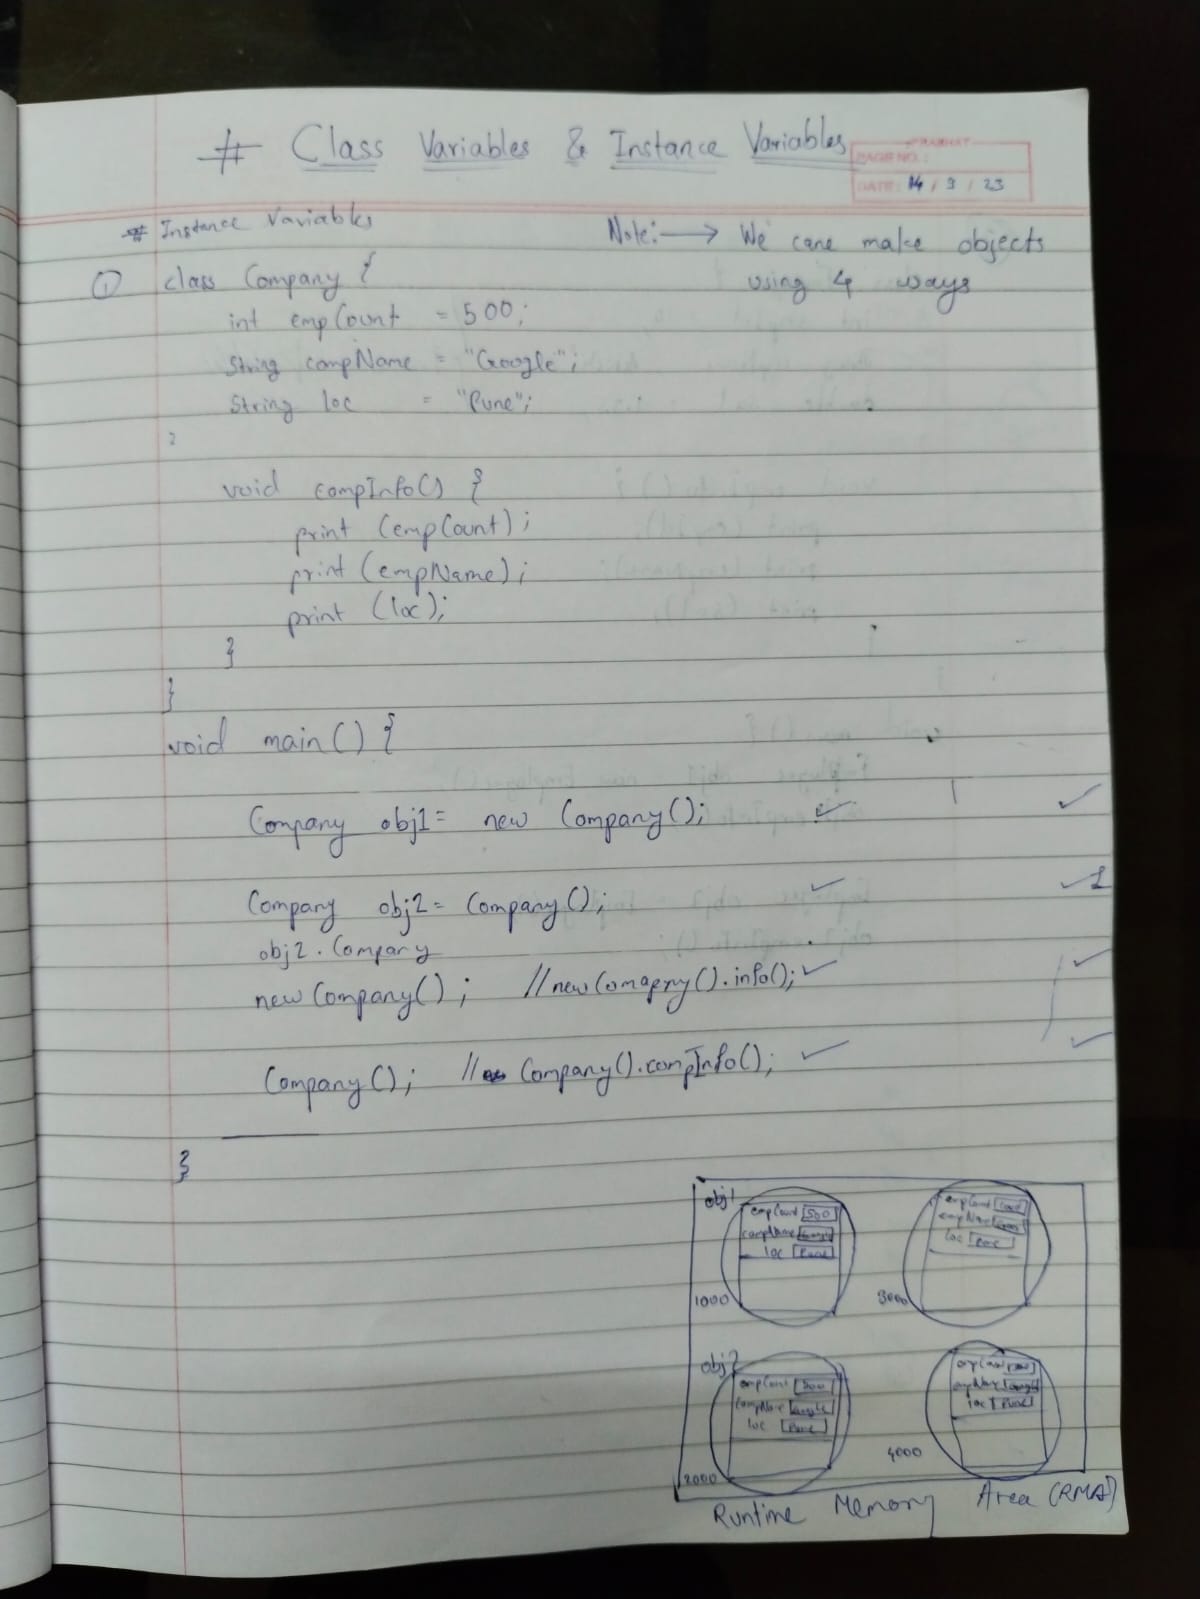 # Class Variables & Instance Variables
PRABHAT
PAGE NO.:
DATE: 14 / 9 / 23
# Instance Variables
Note:→ We cane make objects
using 4 ways
① class Company {
int empCount = 500;
String compName = "Google";
String loc = "Pune";
void compInfo() {
print (empCount);
print (empName);
print (loc);
}
}
void main() {
Company obj1 = new Company(); ✓ ✓
Company obj2 = Company(); ✓ ✓
obj2 . Company
new Company(); //new Comapny().info(); ✓ ✓
Company(); // Company().compInfo(); ✓ ✓
}
obj1
empCount 500
compName Google
loc Pune
1000
empCount
empName
loc Pune
3000
obj2
empCount 500
compName Google
loc Pune
2000
empCount
empName Google
loc Pune
4000
Runtime Memory Area (RMA)